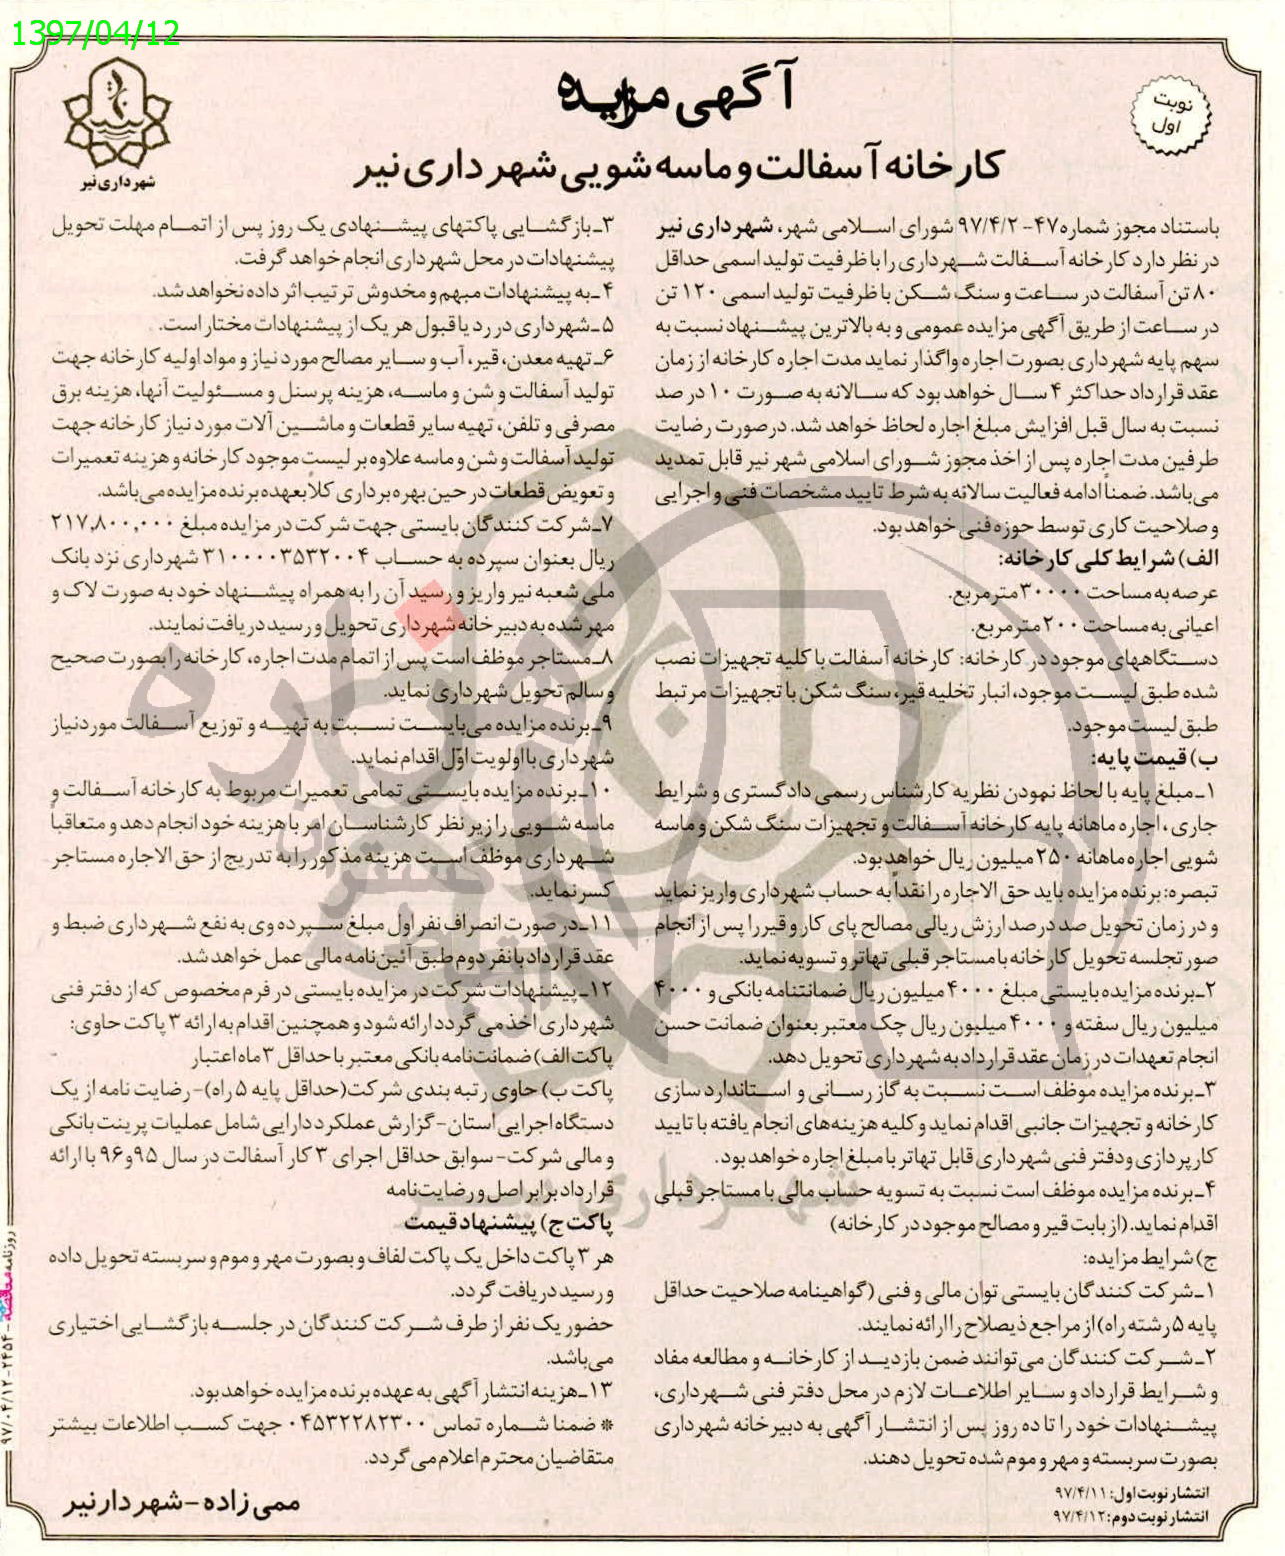 1397/04/12
شهرداری نیر
نوبت
اول
آگهی مزایده
کارخانه آسفالت و ماسه شویی شهرداری نیر
باستناد مجوز شماره ۴۷- ۹۷/۴/۲ شورای اسلامی شهر، شهرداری نیر
در نظر دارد کارخانه آسفالت شهرداری را با ظرفیت تولید اسمی حداقل
۸۰ تن آسفالت در ساعت و سنگ شکن با ظرفیت تولید اسمی ۱۲۰ تن
در ساعت از طریق آگهی مزایده عمومی و به بالاترین پیشنهاد نسبت به
سهم پایه شهرداری بصورت اجاره واگذار نماید مدت اجاره کارخانه از زمان
عقد قرارداد حداکثر ۴ سال خواهد بود که سالانه به صورت ۱۰ در صد
نسبت به سال قبل افزایش مبلغ اجاره لحاظ خواهد شد. در صورت رضایت
طرفین مدت اجاره پس از اخذ مجوز شورای اسلامی شهر نیر قابل تمدید
می‌باشد. ضمناً ادامه فعالیت سالانه به شرط تایید مشخصات فنی و اجرایی
و صلاحیت کاری توسط حوزه فنی خواهد بود.
الف) شرایط کلی کارخانه:
عرصه به مساحت ۳۰۰۰۰ مترمربع.
اعیانی به مساحت ۲۰۰ مترمربع.
دستگاههای موجود در کارخانه: کارخانه آسفالت با کلیه تجهیزات نصب
شده طبق لیست موجود، انبار تخلیه قیر، سنگ شکن با تجهیزات مرتبط
طبق لیست موجود.
ب) قیمت پایه:
۱ـ مبلغ پایه با لحاظ نمودن نظریه کارشناس رسمی دادگستری و شرایط
جاری، اجاره ماهانه پایه کارخانه آسفالت و تجهیزات سنگ شکن و ماسه
شویی اجاره ماهانه ۲۵۰ میلیون ریال خواهد بود.
تبصره: برنده مزایده باید حق الاجاره را نقداً به حساب شهرداری واریز نماید
و در زمان تحویل صد درصد ارزش ریالی مصالح پای کار و قیر را پس از انجام
صورتجلسه تحویل کارخانه با مستاجر قبلی تهاتر و تسویه نماید.
۲ـ برنده مزایده بایستی مبلغ ۴۰۰۰ میلیون ریال ضمانتنامه بانکی و ۴۰۰۰
میلیون ریال سفته و ۴۰۰۰ میلیون ریال چک معتبر بعنوان ضمانت حسن
انجام تعهدات در زمان عقد قرارداد به شهرداری تحویل دهد.
۳ـ برنده مزایده موظف است نسبت به گاز رسانی و استاندارد سازی
کارخانه و تجهیزات جانبی اقدام نماید و کلیه هزینه‌های انجام یافته با تایید
کارپردازی و دفتر فنی شهرداری قابل تهاتر با مبلغ اجاره خواهد بود.
۴ـ برنده مزایده موظف است نسبت به تسویه حساب مالی با مستاجر قبلی
اقدام نماید.(از بابت قیر و مصالح موجود در کارخانه)
ج) شرایط مزایده:
۱ـ شرکت کنندگان بایستی توان مالی و فنی (گواهینامه صلاحیت حداقل
پایه ۵ رشته راه) از مراجع ذیصلاح را ارائه نمایند.
۲ـ شرکت کنندگان می‌توانند ضمن بازدید از کارخانه و مطالعه مفاد
و شرایط قرارداد و سایر اطلاعات لازم در محل دفتر فنی شهرداری،
پیشنهادات خود را تا ده روز پس از انتشار آگهی به دبیرخانه شهرداری
بصورت سربسته و مهر و موم شده تحویل دهند.
انتشار نوبت اول: ۹۷/۴/۱۱
انتشار نوبت دوم: ۹۷/۴/۱۲
۳ـ بازگشایی پاکتهای پیشنهادی یک روز پس از اتمام مهلت تحویل
پیشنهادات در محل شهرداری انجام خواهد گرفت.
۴ـ به پیشنهادات مبهم و مخدوش ترتیب اثر داده نخواهد شد.
۵ـ شهرداری در رد یا قبول هر یک از پیشنهادات مختار است.
۶ـ تهیه معدن، قیر، آب و سایر مصالح مورد نیاز و مواد اولیه کارخانه جهت
تولید آسفالت و شن و ماسه، هزینه پرسنل و مسئولیت آنها، هزینه برق
مصرفی و تلفن، تهیه سایر قطعات و ماشین آلات مورد نیاز کارخانه جهت
تولید آسفالت و شن و ماسه علاوه بر لیست موجود کارخانه و هزینه تعمیرات
و تعویض قطعات در حین بهره برداری کلاً بعهده برنده مزایده می‌باشد.
۷ـ شرکت کنندگان بایستی جهت شرکت در مزایده مبلغ ۲۱۷,۸۰۰,۰۰۰
ریال بعنوان سپرده به حساب ۳۱۰۰۰۰۳۵۳۲۰۰۴ شهرداری نزد بانک
ملی شعبه نیر واریز و رسید آن را به همراه پیشنهاد خود به صورت لاک و
مهر شده به دبیرخانه شهرداری تحویل و رسید دریافت نمایند.
۸ـ مستاجر موظف است پس از اتمام مدت اجاره، کارخانه را بصورت صحیح
و سالم تحویل شهرداری نماید.
۹ـ برنده مزایده می‌بایست نسبت به تهیه و توزیع آسفالت موردنیاز
شهرداری با اولویت اوّل اقدام نماید.
۱۰ـ برنده مزایده بایستی تمامی تعمیرات مربوط به کارخانه آسفالت و
ماسه شویی را زیر نظر کارشناسان امر با هزینه خود انجام دهد و متعاقباً
شهرداری موظف است هزینه مذکور را به تدریج از حق الاجاره مستاجر
کسر نماید.
۱۱ـ در صورت انصراف نفر اول مبلغ سپرده وی به نفع شهرداری ضبط و
عقد قرارداد با نفر دوم طبق آئین‌نامه مالی عمل خواهد شد.
۱۲ـ پیشنهادات شرکت در مزایده بایستی در فرم مخصوص که از دفتر فنی
شهرداری اخذ می گردد ارائه شود و همچنین اقدام به ارائه ۳ پاکت حاوی:
پاکت الف) ضمانت‌نامه بانکی معتبر با حداقل ۳ ماه اعتبار
پاکت ب) حاوی رتبه بندی شرکت(حداقل پایه ۵ راه)- رضایت نامه از یک
دستگاه اجرایی استان- گزارش عملکرد دارایی شامل عملیات پرینت بانکی
و مالی شرکت- سوابق حداقل اجرای ۳ کار آسفالت در سال ۹۵ و ۹۶ با ارائه
قرارداد برابر اصل و رضایت‌نامه
پاکت ج) پیشنهاد قیمت
هر ۳ پاکت داخل یک پاکت لفاف و بصورت مهر و موم و سربسته تحویل داده
و رسید دریافت گردد.
حضور یک نفر از طرف شرکت کنندگان در جلسه بازگشایی اختیاری
می‌باشد.
۱۳ـ هزینه انتشار آگهی به عهده برنده مزایده خواهد بود.
* ضمنا شماره تماس ۰۴۵۳۲۲۸۲۳۰۰ جهت کسب اطلاعات بیشتر
متقاضیان محترم اعلام می گردد.
ممی زاده - شهردار نیر
روزنامه مناقصه - ۲۴۵۴ - ۹۷/۰۴/۱۲